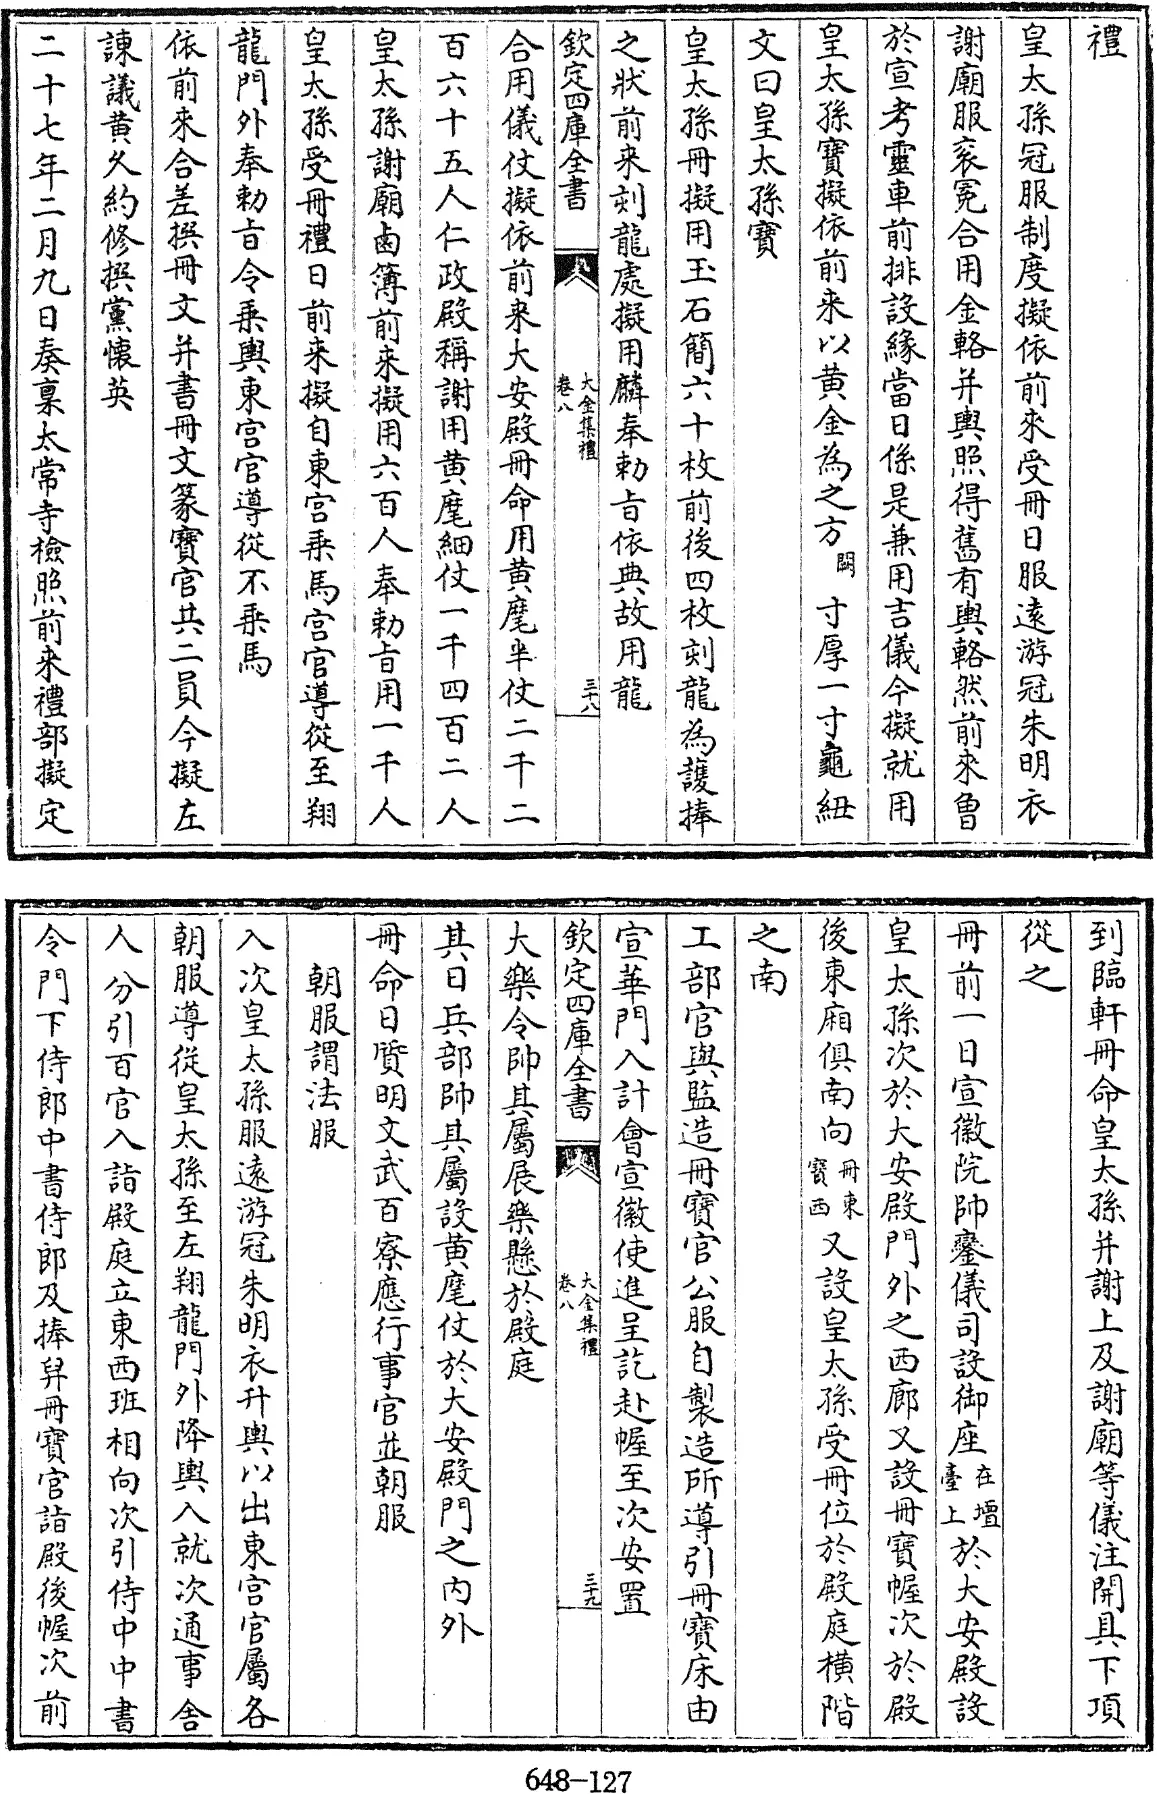 禮
皇太孫冠服制度擬依前來受冊日服遠游冠朱明衣
謝廟服衮冕合用金輅并輿照得舊有輿輅然前來曾
於宣考靈車前排設緣當日係是兼用吉儀今擬就用
皇太孫寶擬依前來以黄金為之方闕寸厚一寸龜紐
文曰皇太孫寶
皇太孫冊擬用玉石簡六十枚前後四枚刻龍為護捧
之狀前来刻龍處擬用麟奉勅旨依典故用龍
欽定四庫全書
大金集禮
卷八
三十八
合用儀仗擬依前來大安殿冊命用黄麾半仗二千二
百六十五人仁政殿稱謝用黄麾細仗一千四百二人
皇太孫謝廟鹵簿前来擬用六百人奉勅旨用一千人
皇太孫受冊禮日前来擬自東宫乗馬宫官導從至翔
龍門外奉勅旨令乗輿東宫官導從不乗馬
依前來合差撰冊文并書冊文篆寶官共二員今擬左
諫議黄久約修撰黨懐英
二十七年二月九日奏稟太常寺檢照前来禮部擬定
到臨軒冊命皇太孫并謝上及謝廟等儀注開具下項
從之
冊前一日宣徽院帥鑾儀司設御座在壇臺上於大安殿設
皇太孫次於大安殿門外之西廊又設冊寶幄次於殿
後東廂俱南向冊東寶西又設皇太孫受冊位於殿庭横階
之南
工部官與監造冊寶官公服自製造所導引冊寶床由
宣華門入計會宣徽使進呈訖赴幄至次安置
欽定四庫全書
大金集禮
卷八
三十九
大樂令帥其屬展樂懸於殿庭
其日兵部帥其屬設黄麾仗於大安殿門之内外
冊命日質明文武百寮應行事官並朝服
朝服謂法服
入次皇太孫服遠游冠朱明衣升輿以出東宫官屬各
朝服導從皇太孫至左翔龍門外降輿入就次通事舎
人分引百官入詣殿庭立東西班相向次引侍中中書
令門下侍郎中書侍郎及捧舁冊寶官詣殿後幄次前
648-127